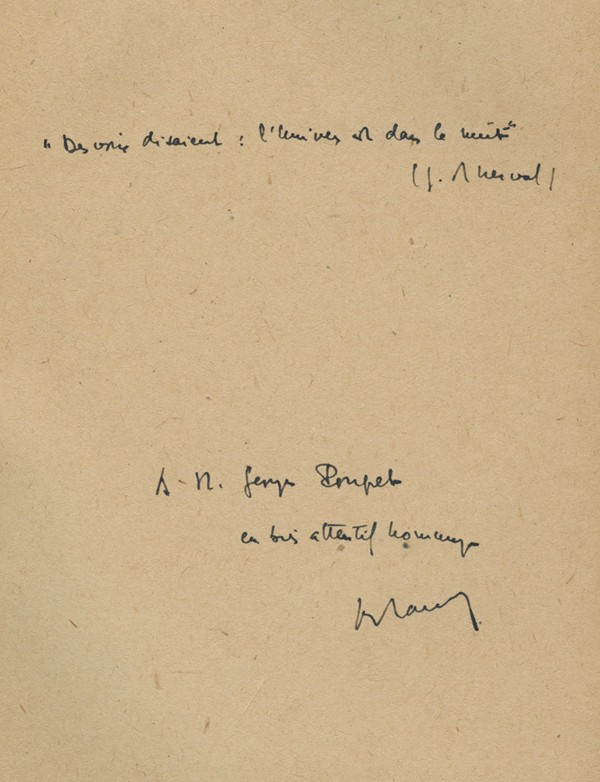 "Des voix disaient : l'Univers est dans la nuit"
(G. de Nerval)
A M. Georges Poupet
en très attentif hommage